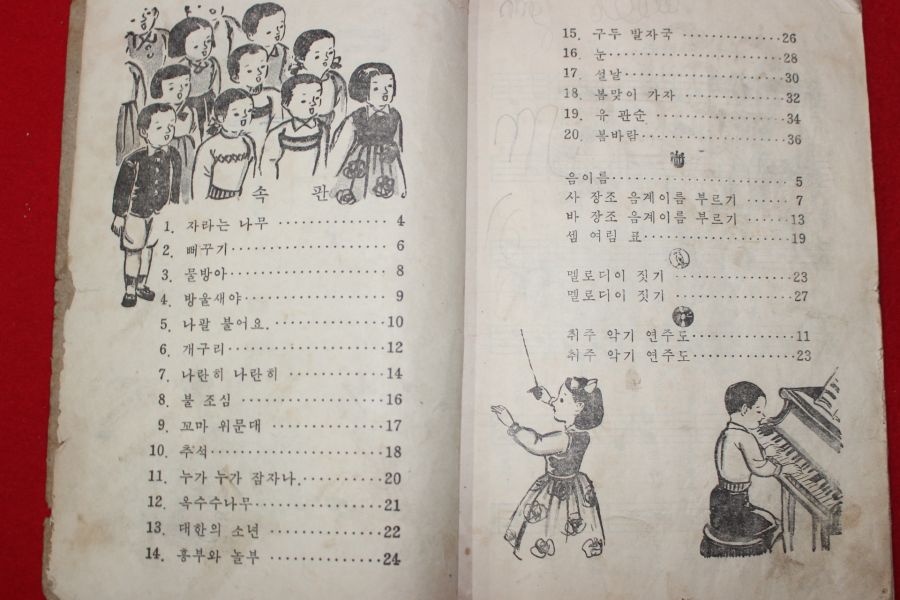 속 판
1. 자라는 나무 ················ 4
2. 뻐꾸기 ······················ 6
3. 물방아 ······················ 8
4. 방울새야 ···················· 9
5. 나팔 불어요. ················ 10
6. 개구리 ······················ 12
7. 나란히 나란히 ················ 14
8. 불 조심 ····················· 16
9. 꼬마 위문대 ·················· 17
10. 추석 ······················· 18
11. 누가 누가 잠자나. ············ 20
12. 옥수수나무 ·················· 21
13. 대한의 소년 ················· 22
14. 흥부와 놀부 ················· 24
15. 구두 발자국 ················· 26
16. 눈 ························· 28
17. 설날 ······················· 30
18. 봄맞이 가자 ················· 32
19. 유 관순 ····················· 34
20. 봄바람 ····················· 36
음이름 ························· 5
사 장조 음계이름 부르기 ·········· 7
바 장조 음계이름 부르기 ·········· 13
셈 여림 표 ····················· 19
멜로디이 짓기 ·················· 23
멜로디이 짓기 ·················· 27
취주 악기 연주도 ················ 11
취주 악기 연주도 ················ 23